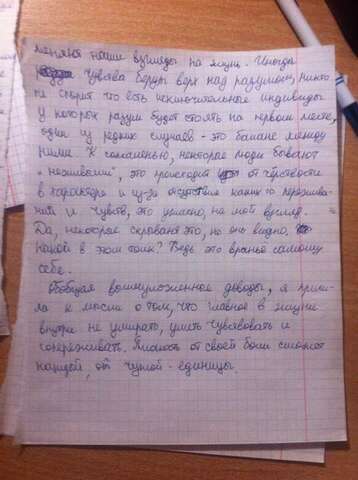 меняют наши взгляды на жизнь. Иногда
чувства берут верх над разумом, никто
не спорит что есть исключительные индивиды
у которых разум будет стоять на первом месте,
один из редких случаев - это баланс между
ними. К сожалению, некоторые люди бывают
"неживыми", это происходит от чёрствости
в характере и из-за отсутствия каких то пережива-
ний и чувств, это ужасно, на мой взгляд.
Да, некоторые скрывают это, но оно видно.
какой в этом толк? Ведь это враньё самому
себе.
Обобщая вышеизложенные доводы, я приш-
ла к мысли о том, что главное в жизни
внутри не умирать, уметь чувствовать и
сопереживать. Плакать от своей боли сможет
каждый, от чужой - единицы.